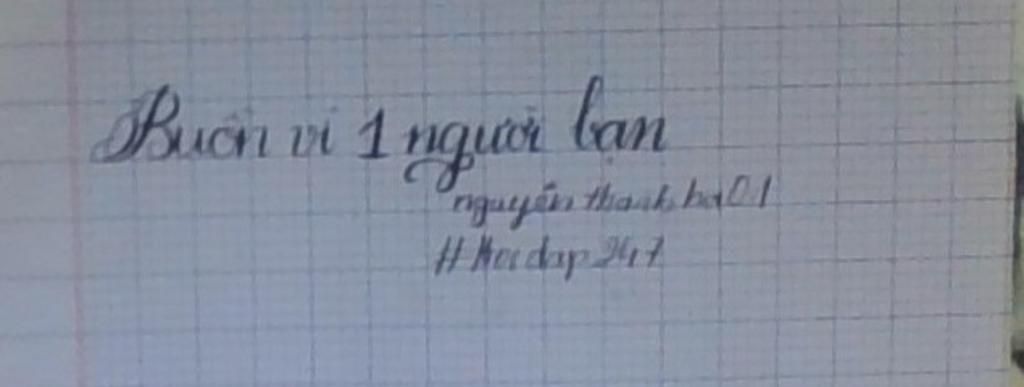 Buồn vì 1 người bạn
nguyễn thanh hà 01
#Hoidap247